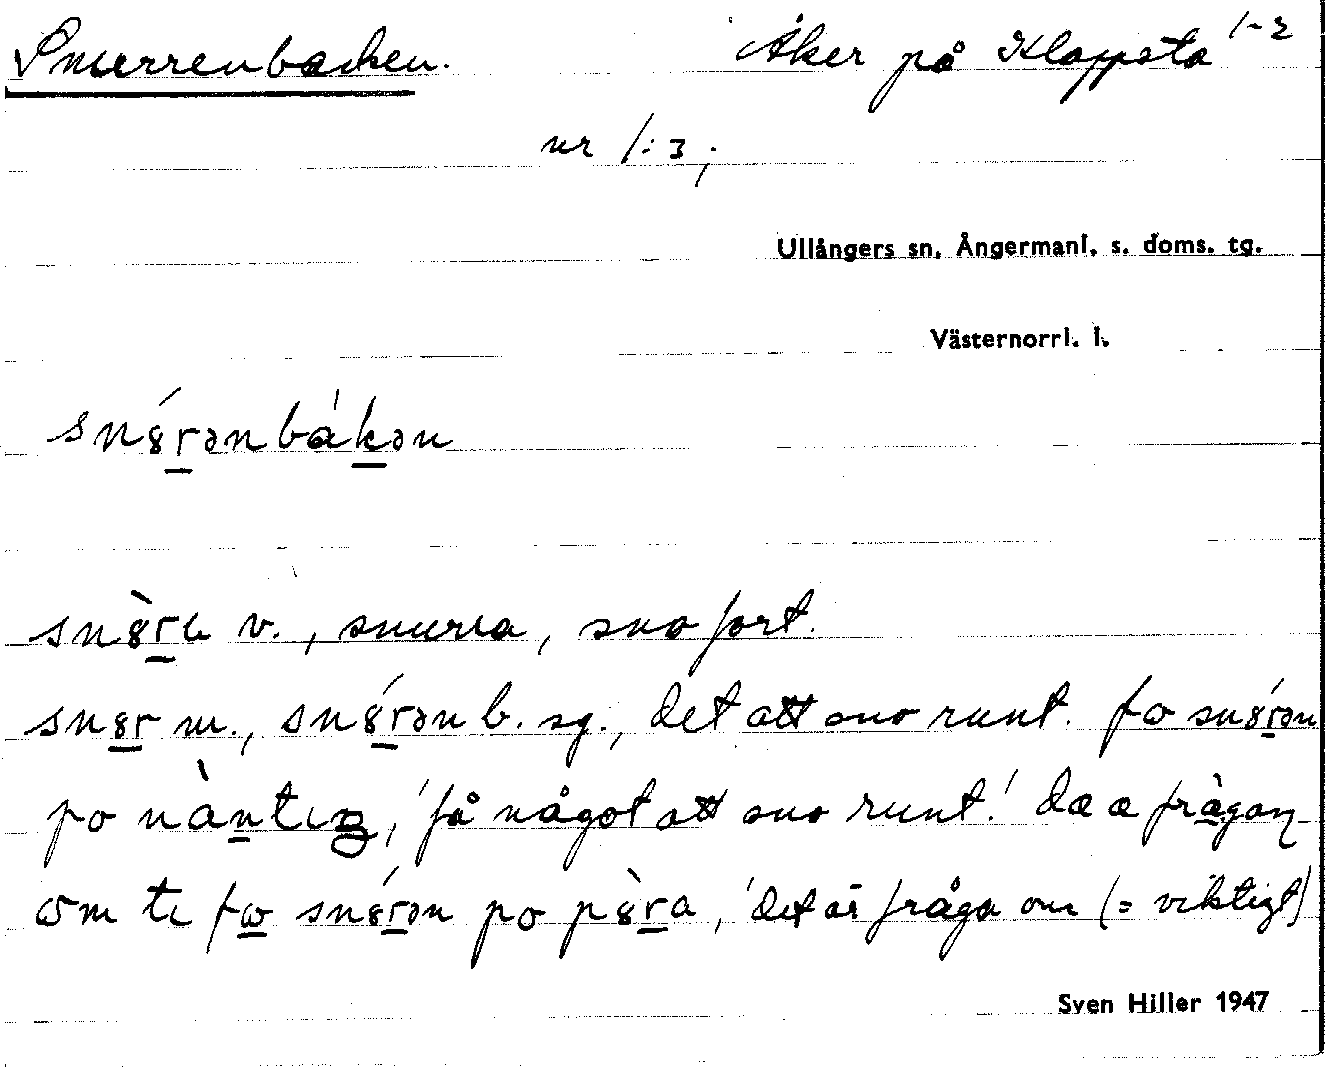 Snurrenbacken. Åker på Klappsta 1-2
nr 1:3;
Ullångers sn, Ångermanl. s. doms. tg.
Västernorrl. l.
sn8́rənbákən
sn8̀ra v., snurra, sno fort.
sn8r m., sn8́rən b. sg., det att sno runt. fω sn8́rən
po nàntiŋ, 'få något att sno runt.' dæ æ frågaŋ
ωm te fω sn8́rən po p8̀ra, 'det är fråga om (= viktigt)
Sven Hiller 1947